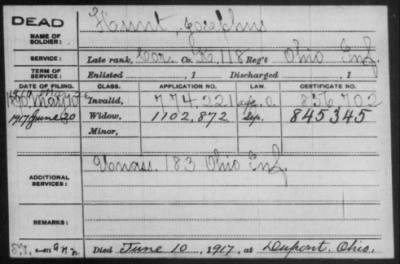 DEAD
NAME OF SOLDIER: Hunt, Josephus
SERVICE: Late rank, Cor. Co. K, 118 Reg't Ohio Inf.
TERM OF SERVICE: Enlisted , 1 Discharged , 1
DATE OF FILING. CLASS. APPLICATION NO. LAW. CERTIFICATE NO.
1890 May Invalid, 774.221 O. 856,702
1917 June 20 Widow, 1102,872 845345
Minor,
ADDITIONAL SERVICES: Unass. 183 Ohio Inf.
REMARKS:
Died June 10, 1917, at Dupont, Ohio.